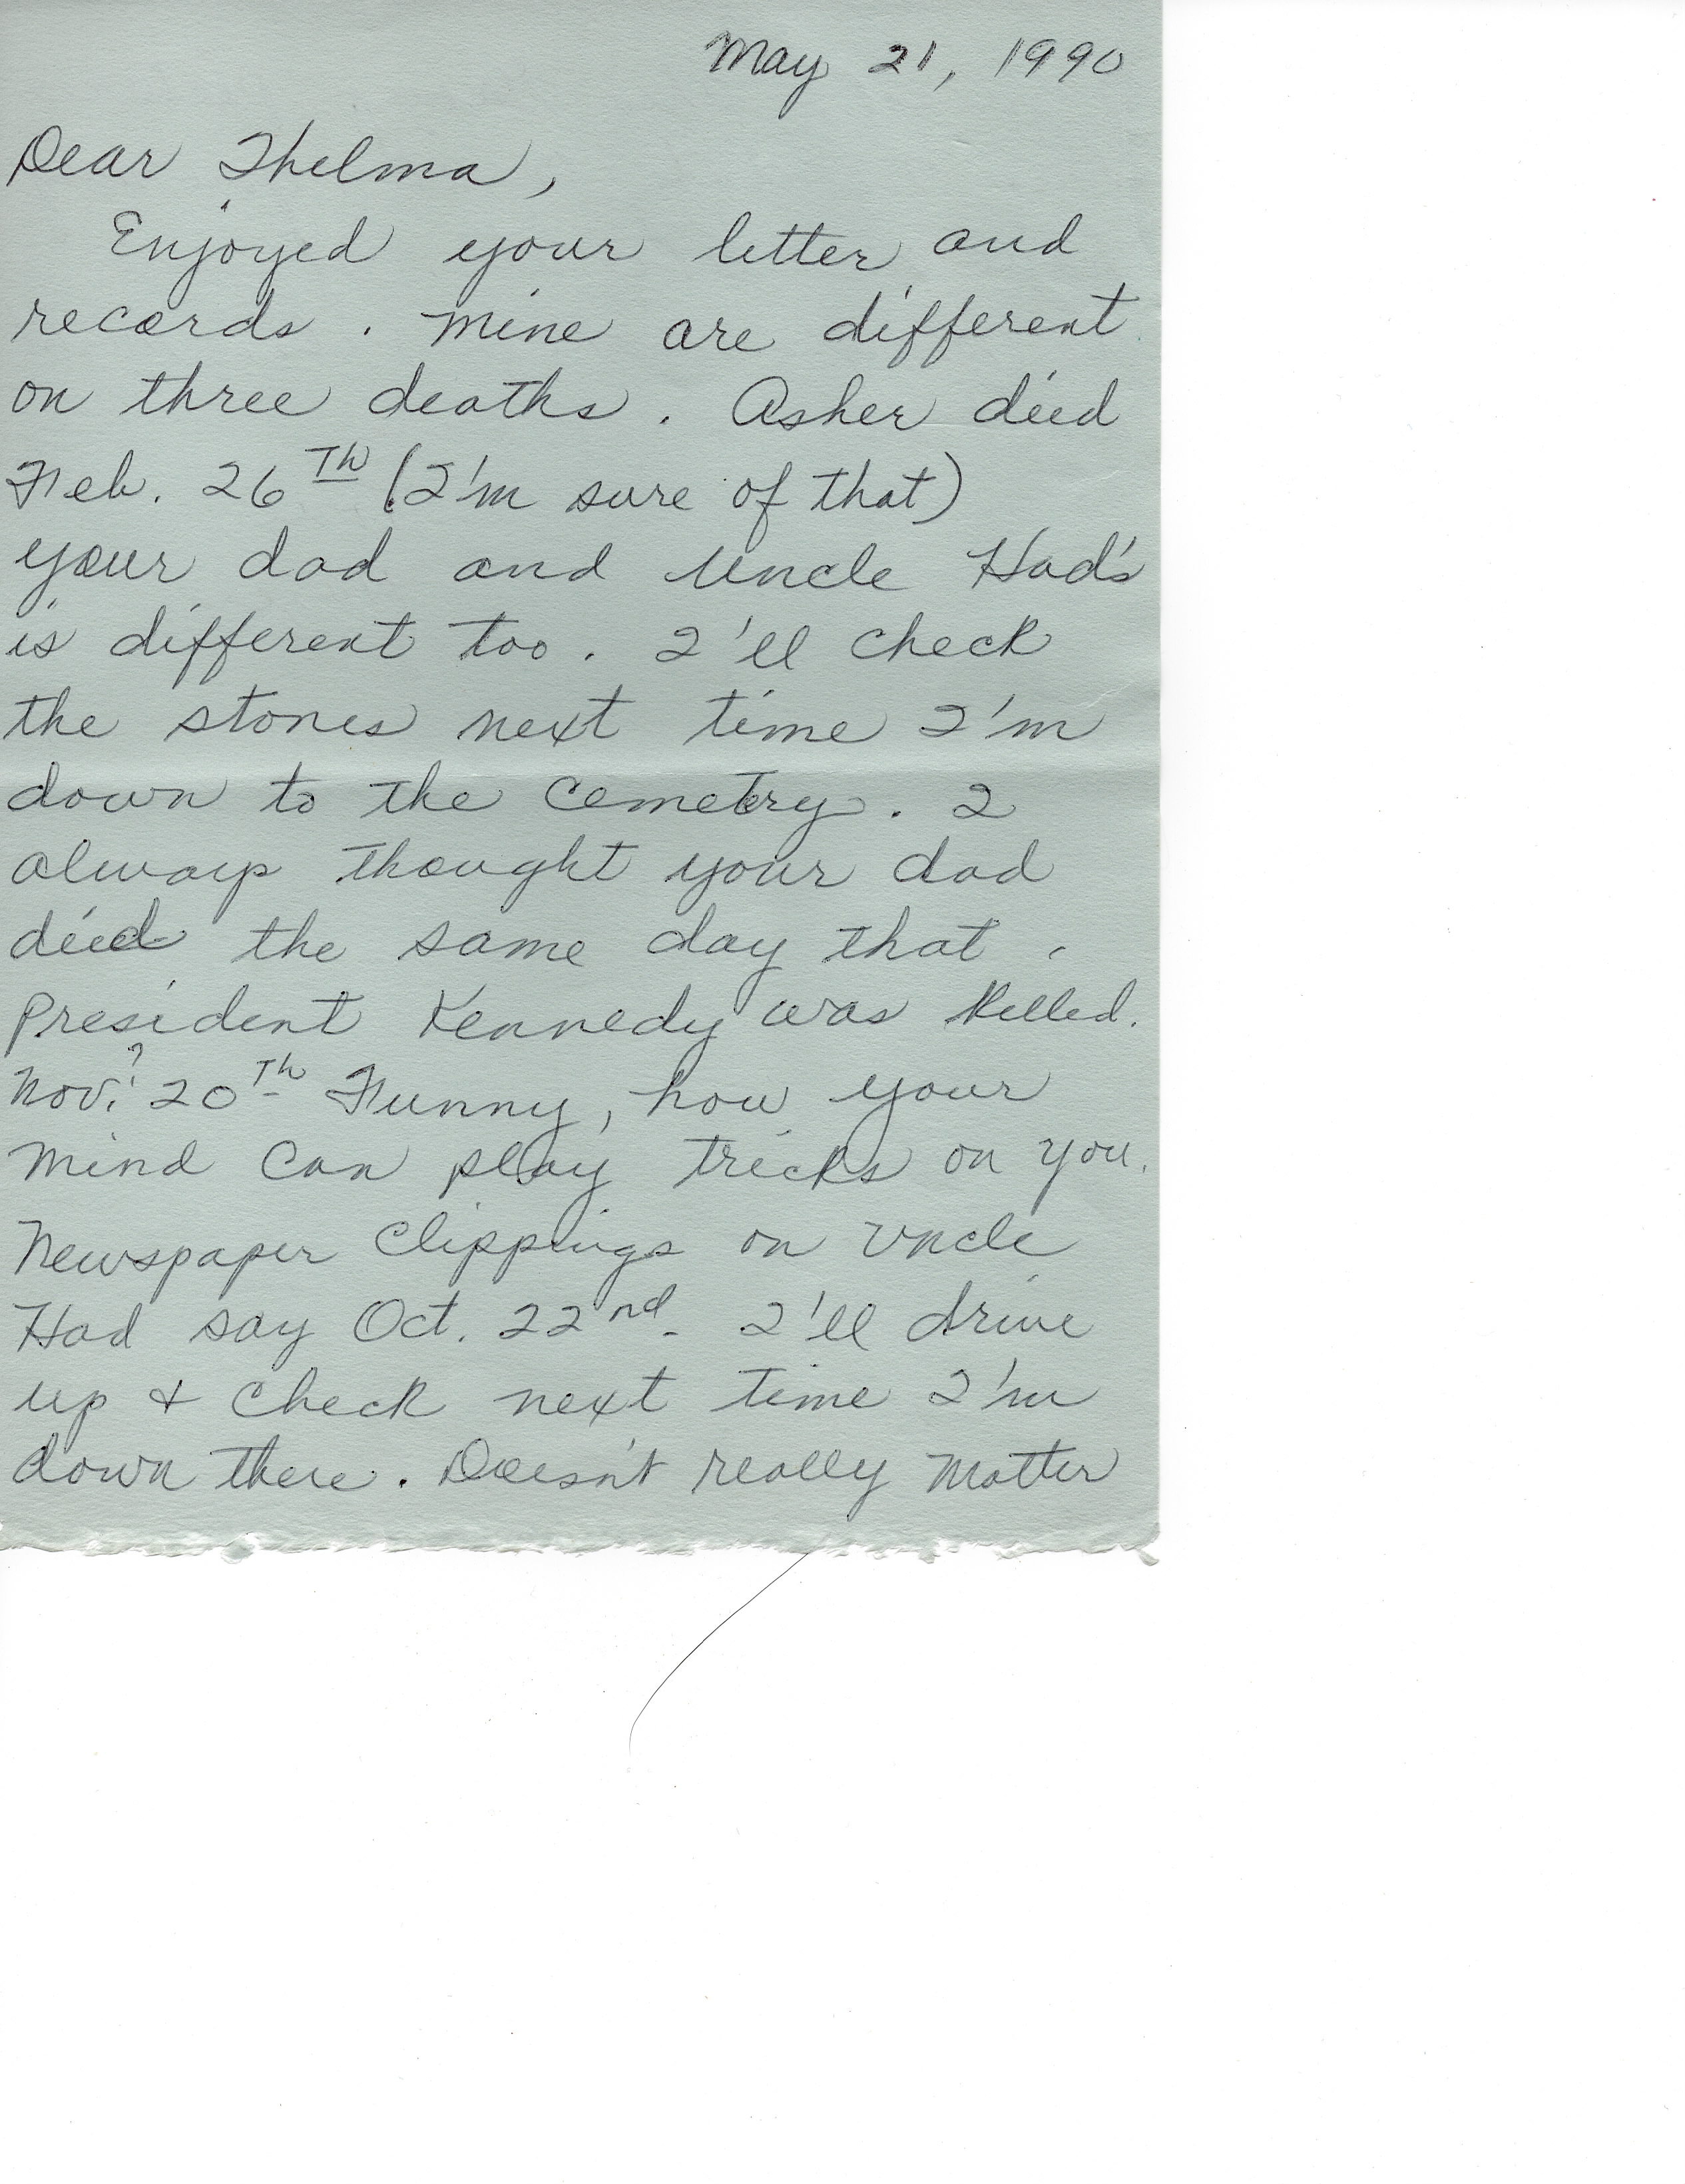 May 21, 1990
Dear Thelma,
Enjoyed your letter and
records. Mine are different
on three deaths. Asher died
Feb. 26TH (I'm sure of that)
your dad and Uncle Had's
is different too. I'll check
the stones next time I'm
down to the cemetry. I
always thought your dad
died the same day that
President Kennedy was killed.
Nov.? 20Th Funny, how your
mind can play tricks on you.
Newspaper clippings on Uncle
Had say Oct. 22nd. I'll drive
up + check next time I'm
down there. Doesn't really matter